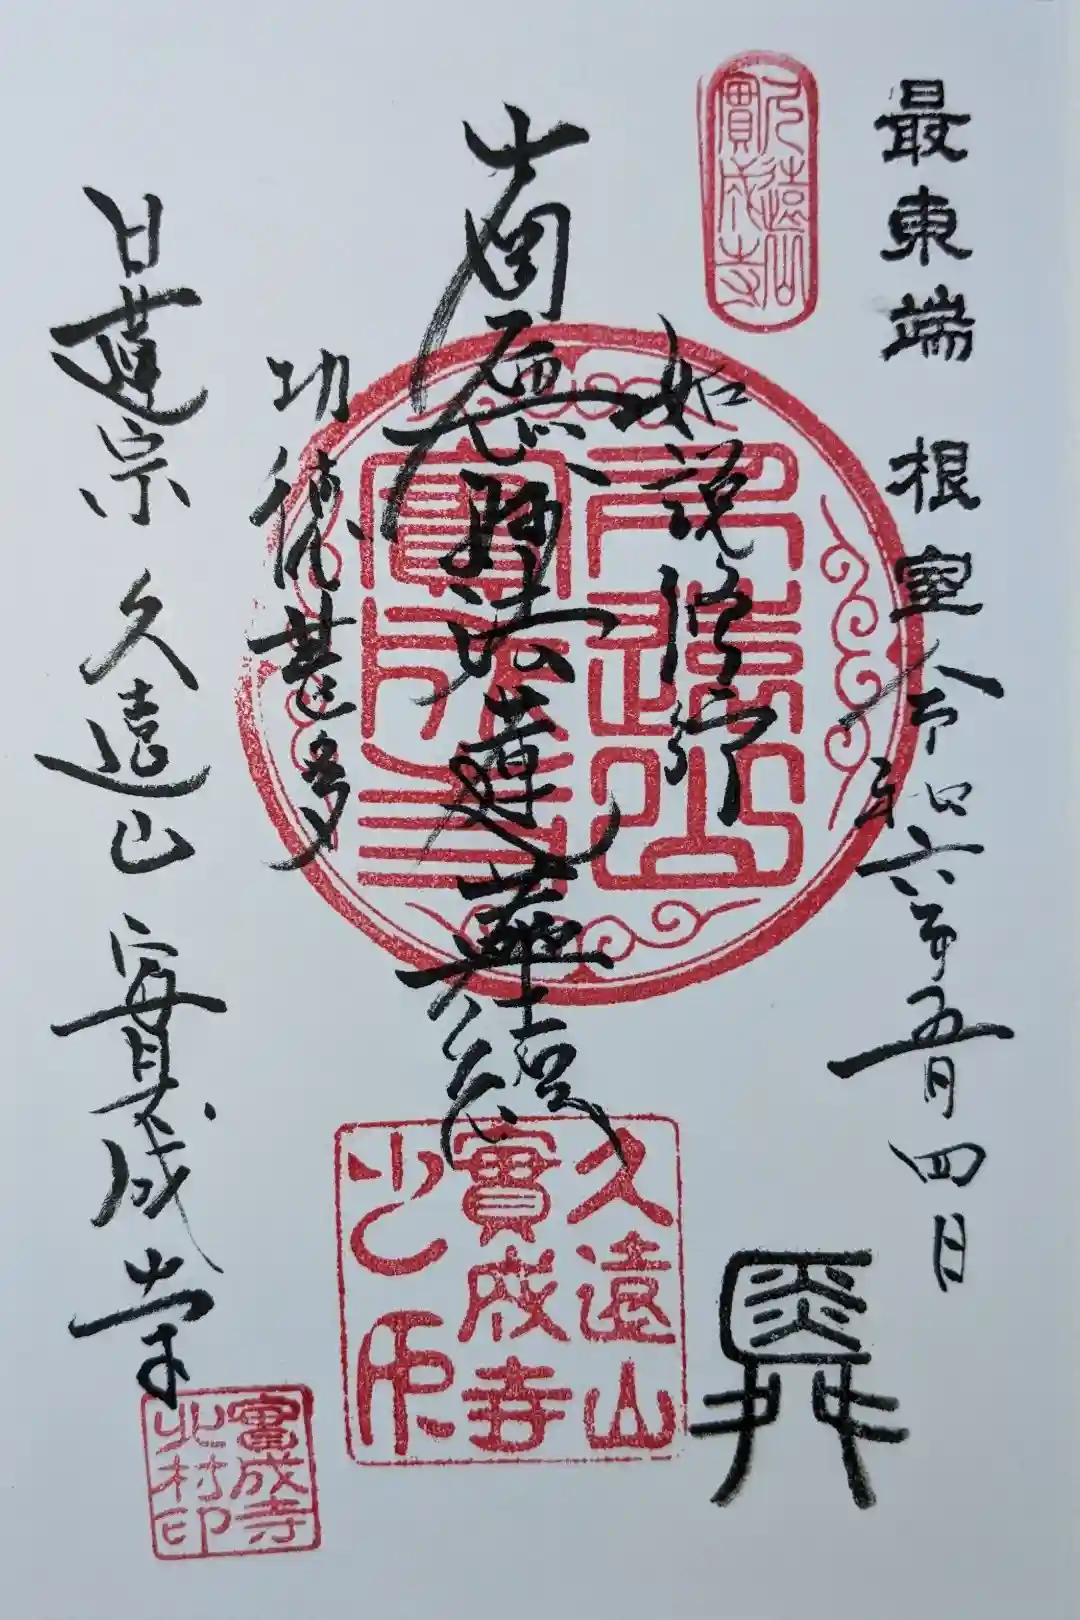 最東端 根室
令和六年五月四日
久遠山
實成寺
如説修行
南無妙法蓮華経
功徳甚多
日蓮宗 久遠山 實成寺
久遠山
實成寺
久遠山
實成寺
之印
實成寺
北村印